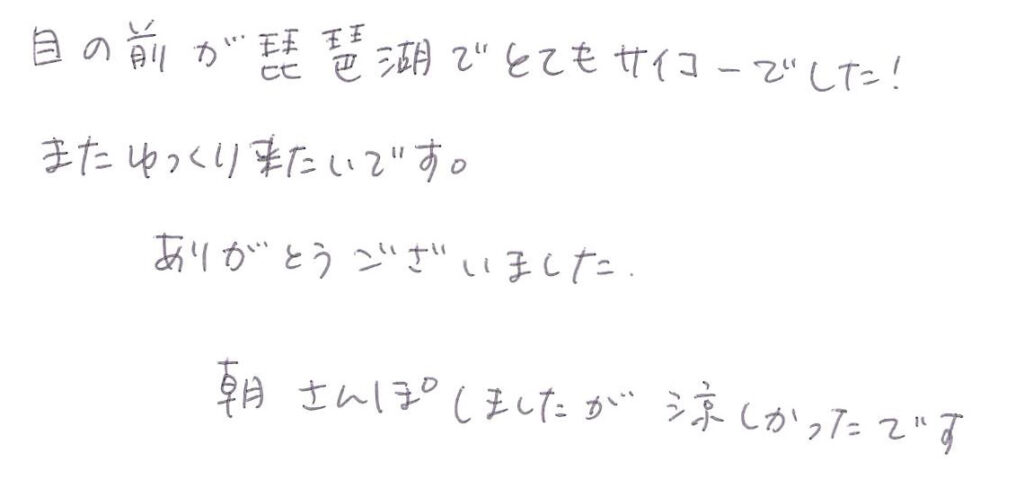 目の前が琵琶湖でとてもサイコーでした!
またゆっくり来たいです。
ありがとうございました.
朝さんぽしましたが涼しかったです